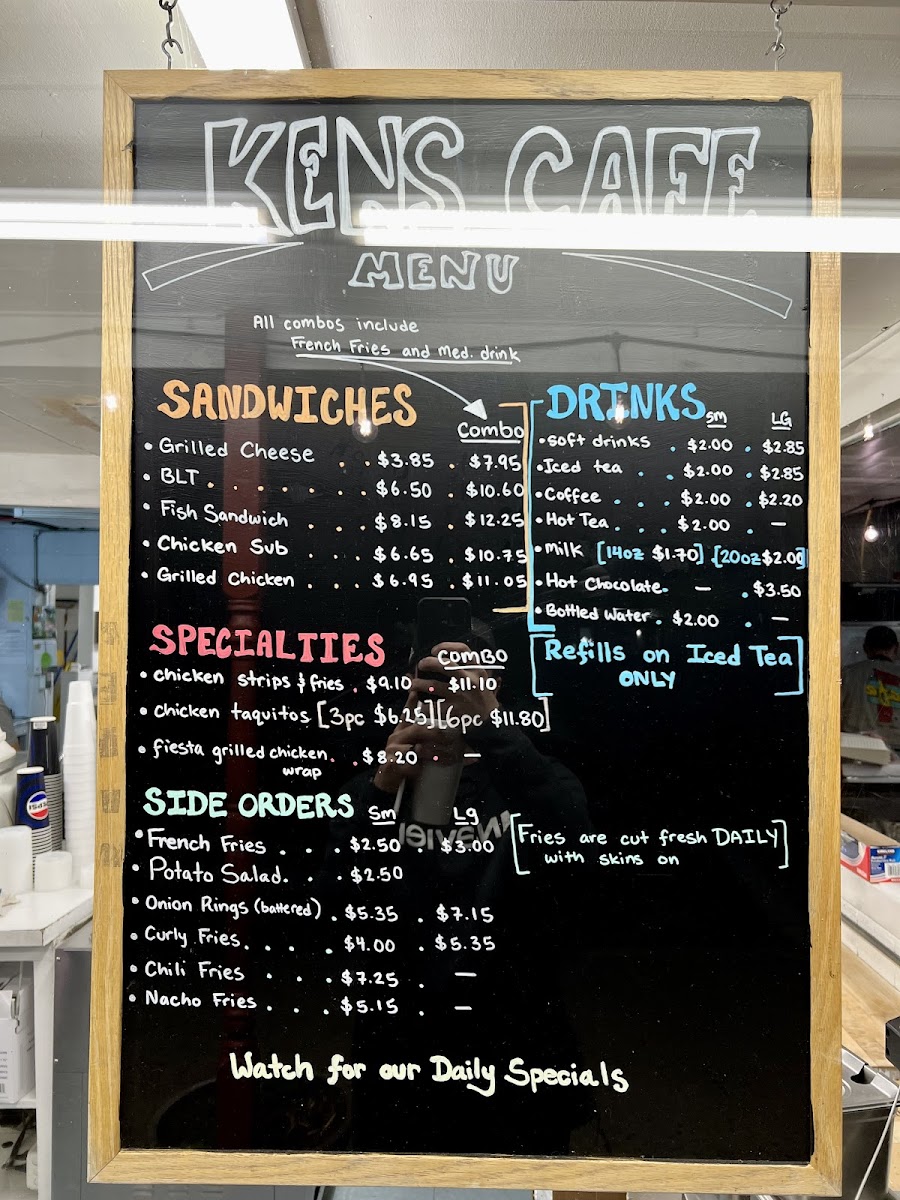 KENS CAFE
MENU
All combos include
French Fries and med. drink
SANDWICHES
Combo
• Grilled Cheese . . $3.85 . $7.95
• BLT . . . . . . $6.50 . $10.60
• Fish Sandwich . . . $8.15 . $12.25
• Chicken Sub . . . $6.65 . $10.75
• Grilled Chicken . . . $6.95 . $11.05
DRINKS sm LG
• soft drinks . $2.00 . $2.85
• Iced tea . . $2.00 . $2.85
• Coffee . . . $2.00 . $2.20
• Hot Tea . . . $2.00 . —
• Milk [14oz $1.70] [20oz $2.00]
• Hot Chocolate . — . $3.50
• Bottled Water . $2.00 . —
Refills on Iced Tea
ONLY
SPECIALTIES COMBO
• chicken strips & fries . $9.10 . $11.10
• chicken taquitos [3pc $6.25] [6pc $11.80]
• fiesta grilled chicken . . $8.20 . —
wrap
SIDE ORDERS Sm Lg
• French Fries . . . $2.50 $3.00
• Potato Salad . . . $2.50
• Onion Rings (battered) . $5.35 . $7.15
• Curly Fries . . . . $4.00 . $5.35
• Chili Fries . . . $7.25 . —
• Nacho Fries . . . $5.15 . —
[Fries are cut fresh DAILY
with skins on]
Watch for our Daily Specials
PEPSI